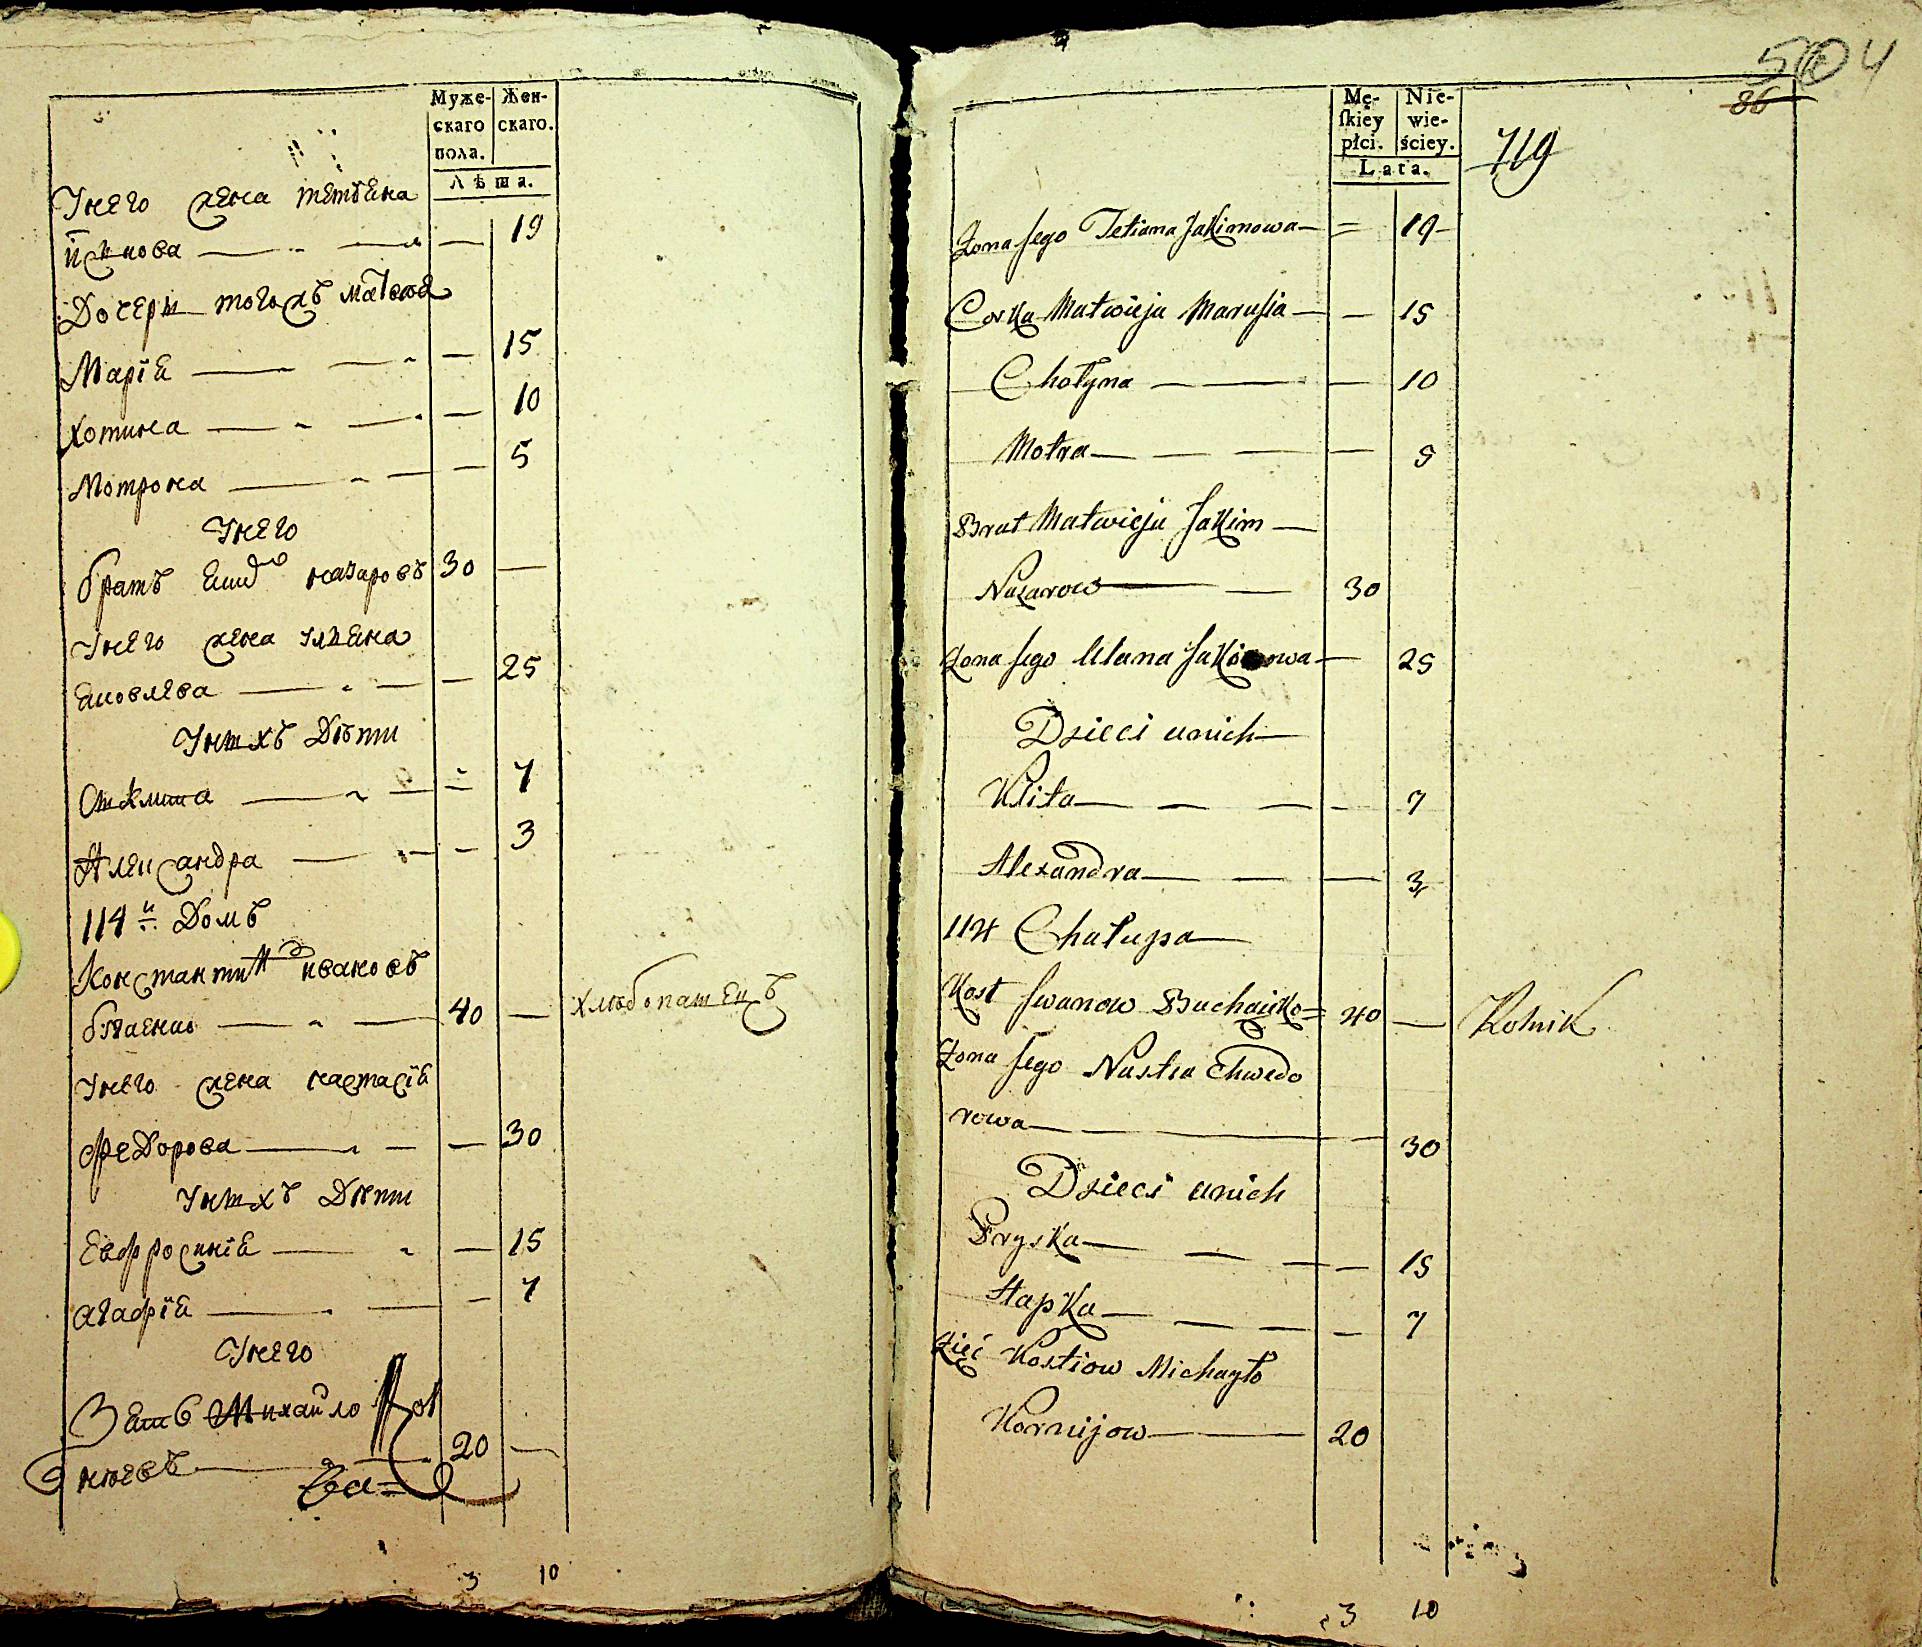 Муже-
скаго
пола.
Жен-
скаго.
Лѣта.
Унего жена тетѣяна
19
Дочери тогожъ матвѣя
Марїя — — — 15
Хотина — — — 10
Мотрона — — — 5
Унего
братъ Яким назаровъ 30 —
Унего жена уляна
Яковлева — — — 25
Унихъ Дѣти
— — 7
Александра — — — 3
114й Домъ
Константин ивановъ
40 — хлѣбопашецъ
Унего жена настасїя
федорова — — — 30
Унихъ Дѣти
Евфросинїя — — 15
агафїя — — — 7
Унего
Зять Михайло Кор
нѣевъ — 20 —
3 10
504
86
719
Mę-
ſkiey
płci.
Nie-
wie-
ściey.
Lata.
Zona Jego Tetiana Jakimowa — = 19
Corka Matwieja Marusia — — 15
Chotyna — — — 10
Motra — — — — 5
Brat Matwieja Jakim —
Nazarow — — 30
Zona Jego Ulana — 25
Dzieci unich —
Klita — — — — 7
Alexandra — — — 3
114 Chałupa —
Kost Iwanow Buchaiko = 40 — Rolnik
Zona Jego Nastia Chwedo
rowa — — — 30
Dzieci unich
Pryska — — — — 15
Hapka — — — — 7
Zięć Kostiow Michayło
Kornijow — — 20
3 10